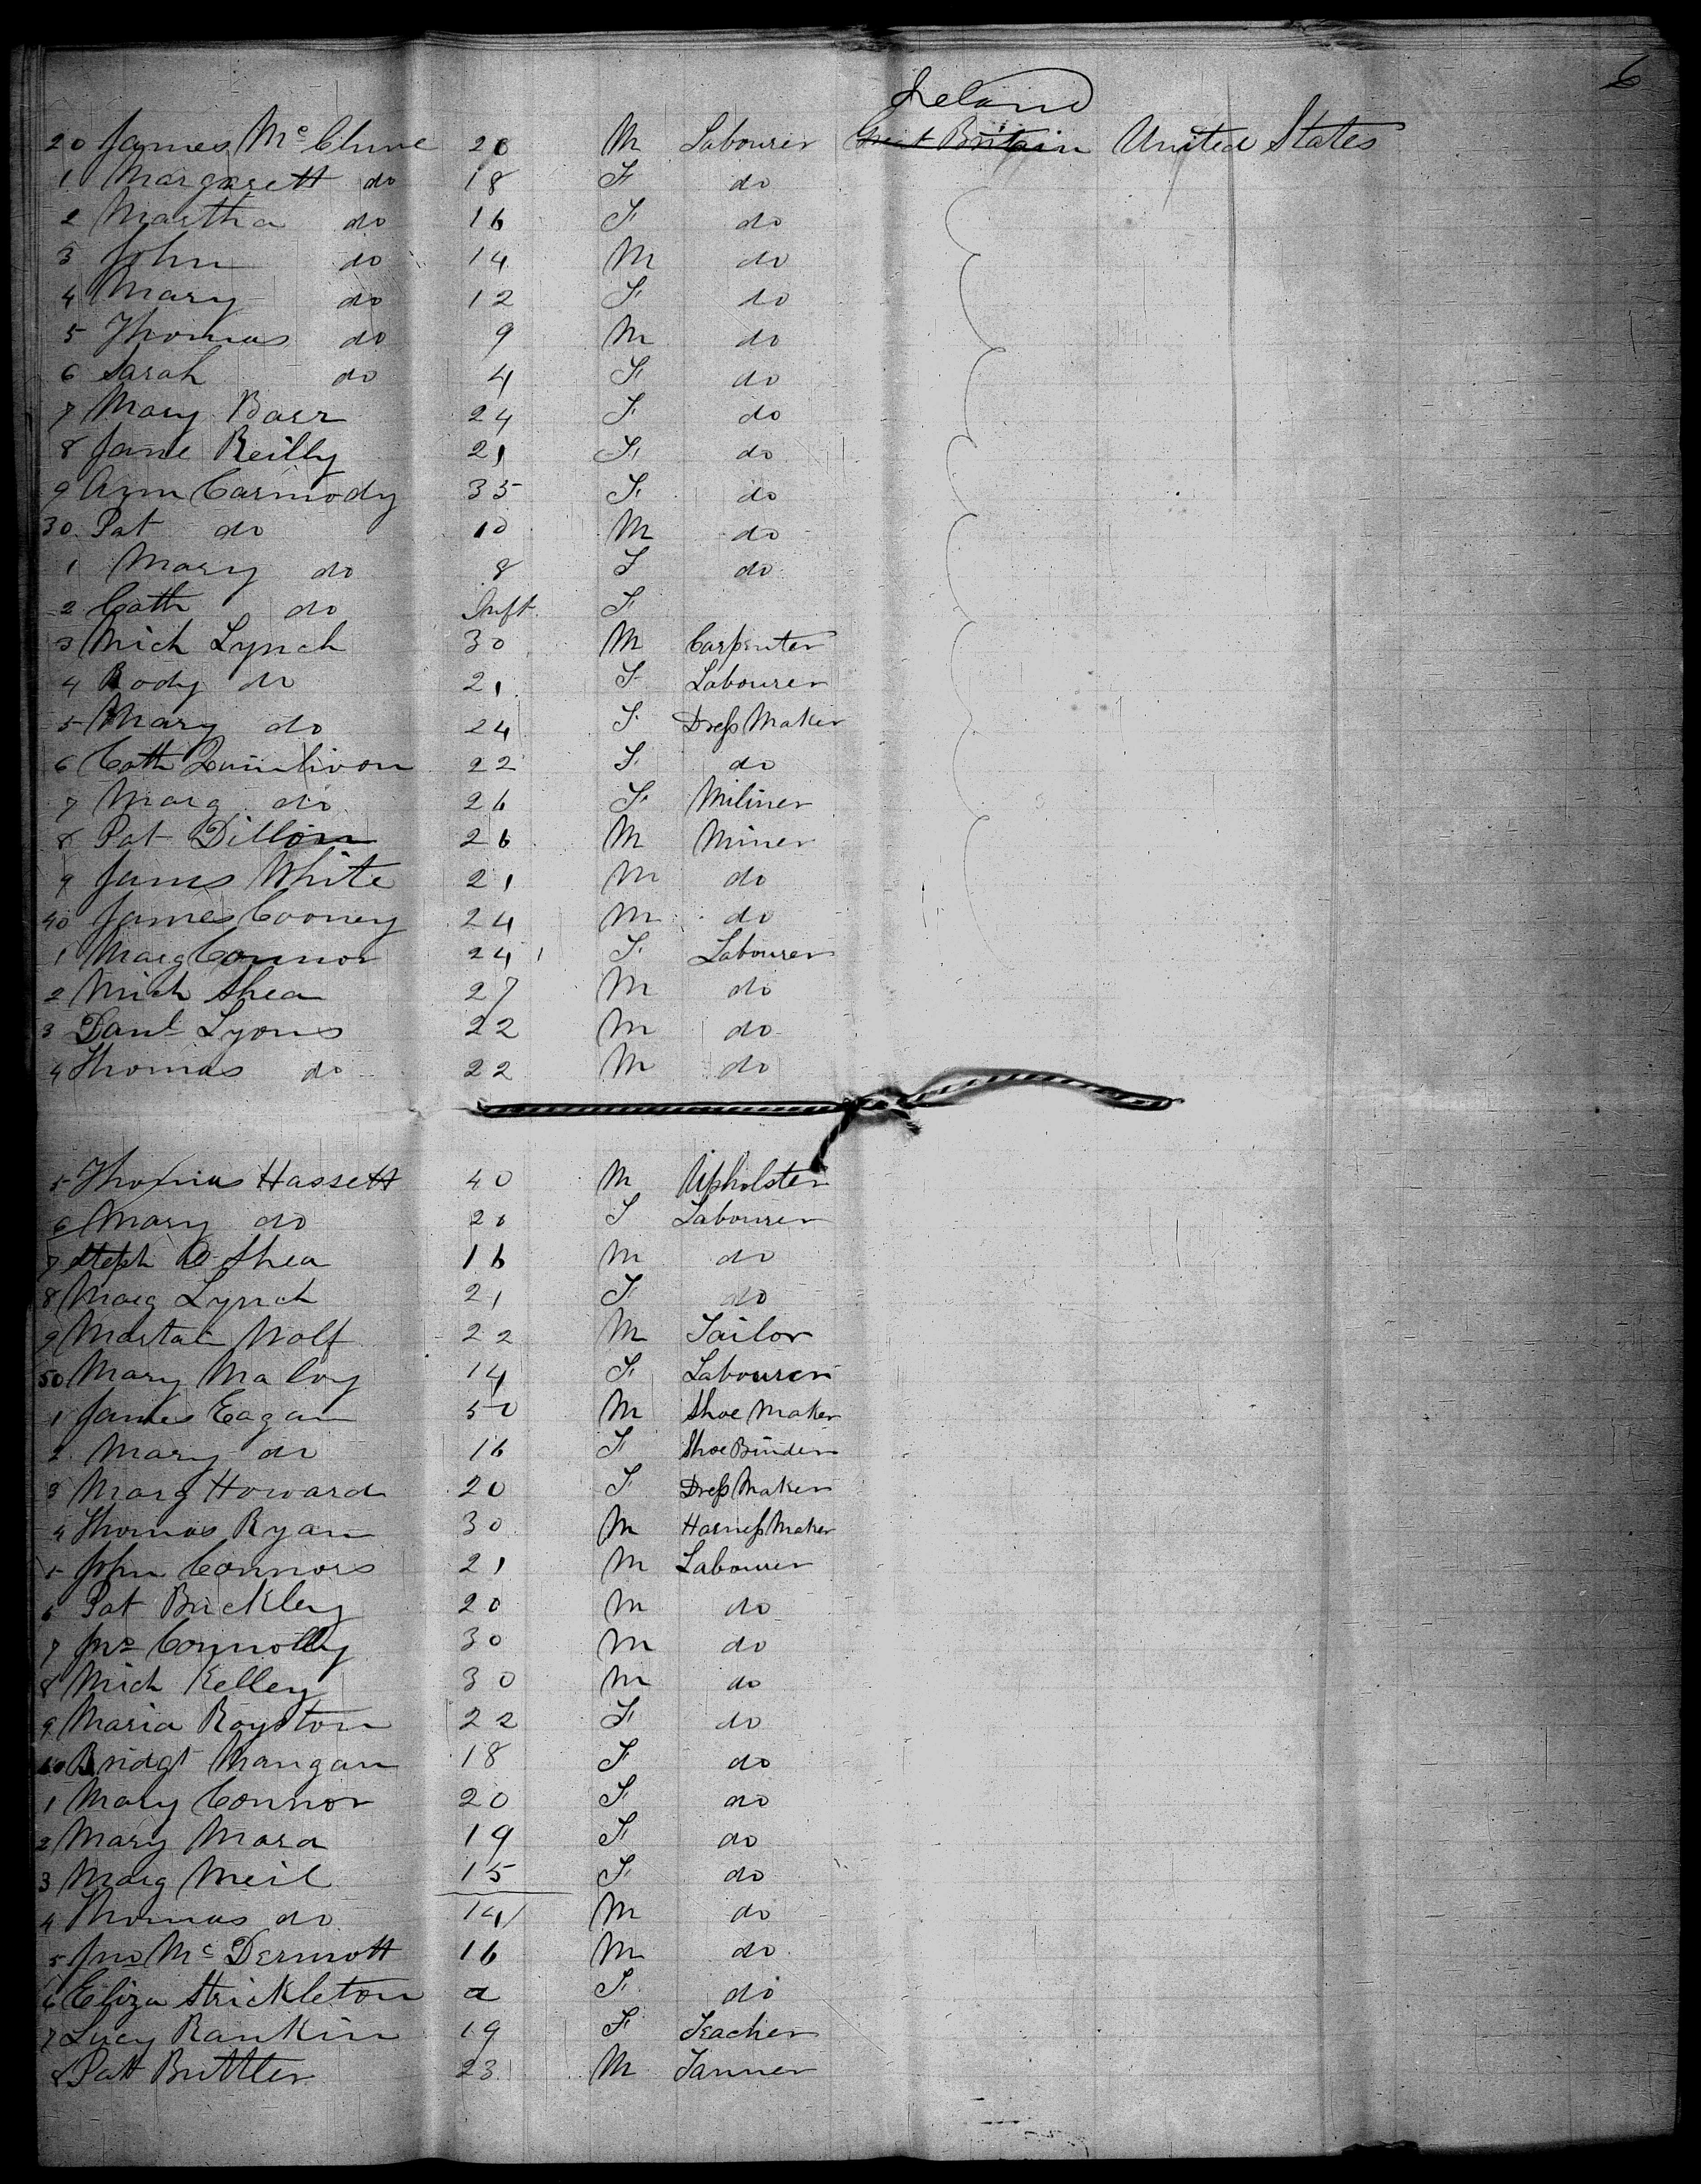 6
Ireland
20 James McClune 20 M Labourer Great Britain United States
1 Margarett do 18 F do
2 Martha do 16 F do
3 John do 14 M do
4 Mary do 12 F do
5 Thomas do 9 M do
6 Sarah do 4 F do
7 Mary Barr 24 F do
8 Jane Reilly 21 F do
9 Ann Carmody 35 F do
30 Pat do 10 M do
1 Mary do 8 F do
2 Cath do Inft. F
3 Mich Lynch 30 M Carpenter
4 Body do 21 F Labourer
5 Mary do 24 F Dress Maker
6 Cath Quinlivon 22 F do
7 Marg do 26 F Miliner
8 Pat Dillon 26 M Miner
9 James White 21 M do
40 James Cooney 24 M do
1 Marg Connor 24 F Labourer
2 Mich Shea 27 M do
3 Danl Lyons 22 M do
4 Thomas do 22 M do
5 Thomas Hassett 40 M Upholster
6 Mary do 20 F Labourer
7 Steph O Shea 16 M do
8 Marg Lynch 21 F do
9 Martain Wolf 22 M Tailor
50 Mary Maloy 14 F Labourer
1 James Eagan 50 M Shoe Maker
2 Mary do 16 F Shoe Binder
3 Marg Howard 20 F Dress Maker
4 Thomas Ryan 30 M Harness Maker
5 John Connors 21 M Labourer
6 Pat Buckley 20 M do
7 Jno Connolly 30 M do
8 Mich Kelley 30 M do
9 Maria Royston 22 F do
60 Bridgt Mangan 18 F do
1 Mary Connor 20 F do
2 Mary Mara 19 F do
3 Marg Meil 15 F do
4 Thomas do 14 M do
5 Jno McDermott 16 M do
6 Eliza Strickleton a F do
7 Lucy Rankin 19 F Teacher
8 Patt Buttler 23 M Tanner